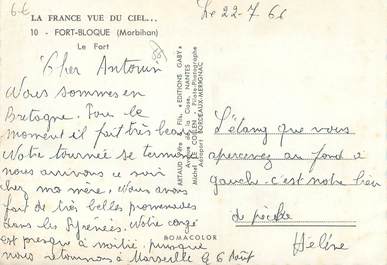 6€
LA FRANCE VUE DU CIEL...
10 - FORT-BLOQUE (Morbihan)
Le Fort
Le 22-7 66
Cher Antonin
Nous sommes en
Bretagne. Pour le
moment il fait très beau
Notre tournée se termine
nous arrivons ce soir
chez ma mère. Nous avons
fait de très belles promenades
dans les Pyrénées. Notre congé
est presque à moitié, puisque
nous retournons à Marseille le 6 Août
ARTAUD Père et Fils, "EDITIONS GABY"
rue de la Cognée, NANTES
Michel LE COLLEN Pilote-Photographe
Aéroport BORDEAUX-MERIGNAC
L'étang que vous
apercevez au fond à
gauche. c'est notre lieu
de pêche
ROMACOLOR
Hélène